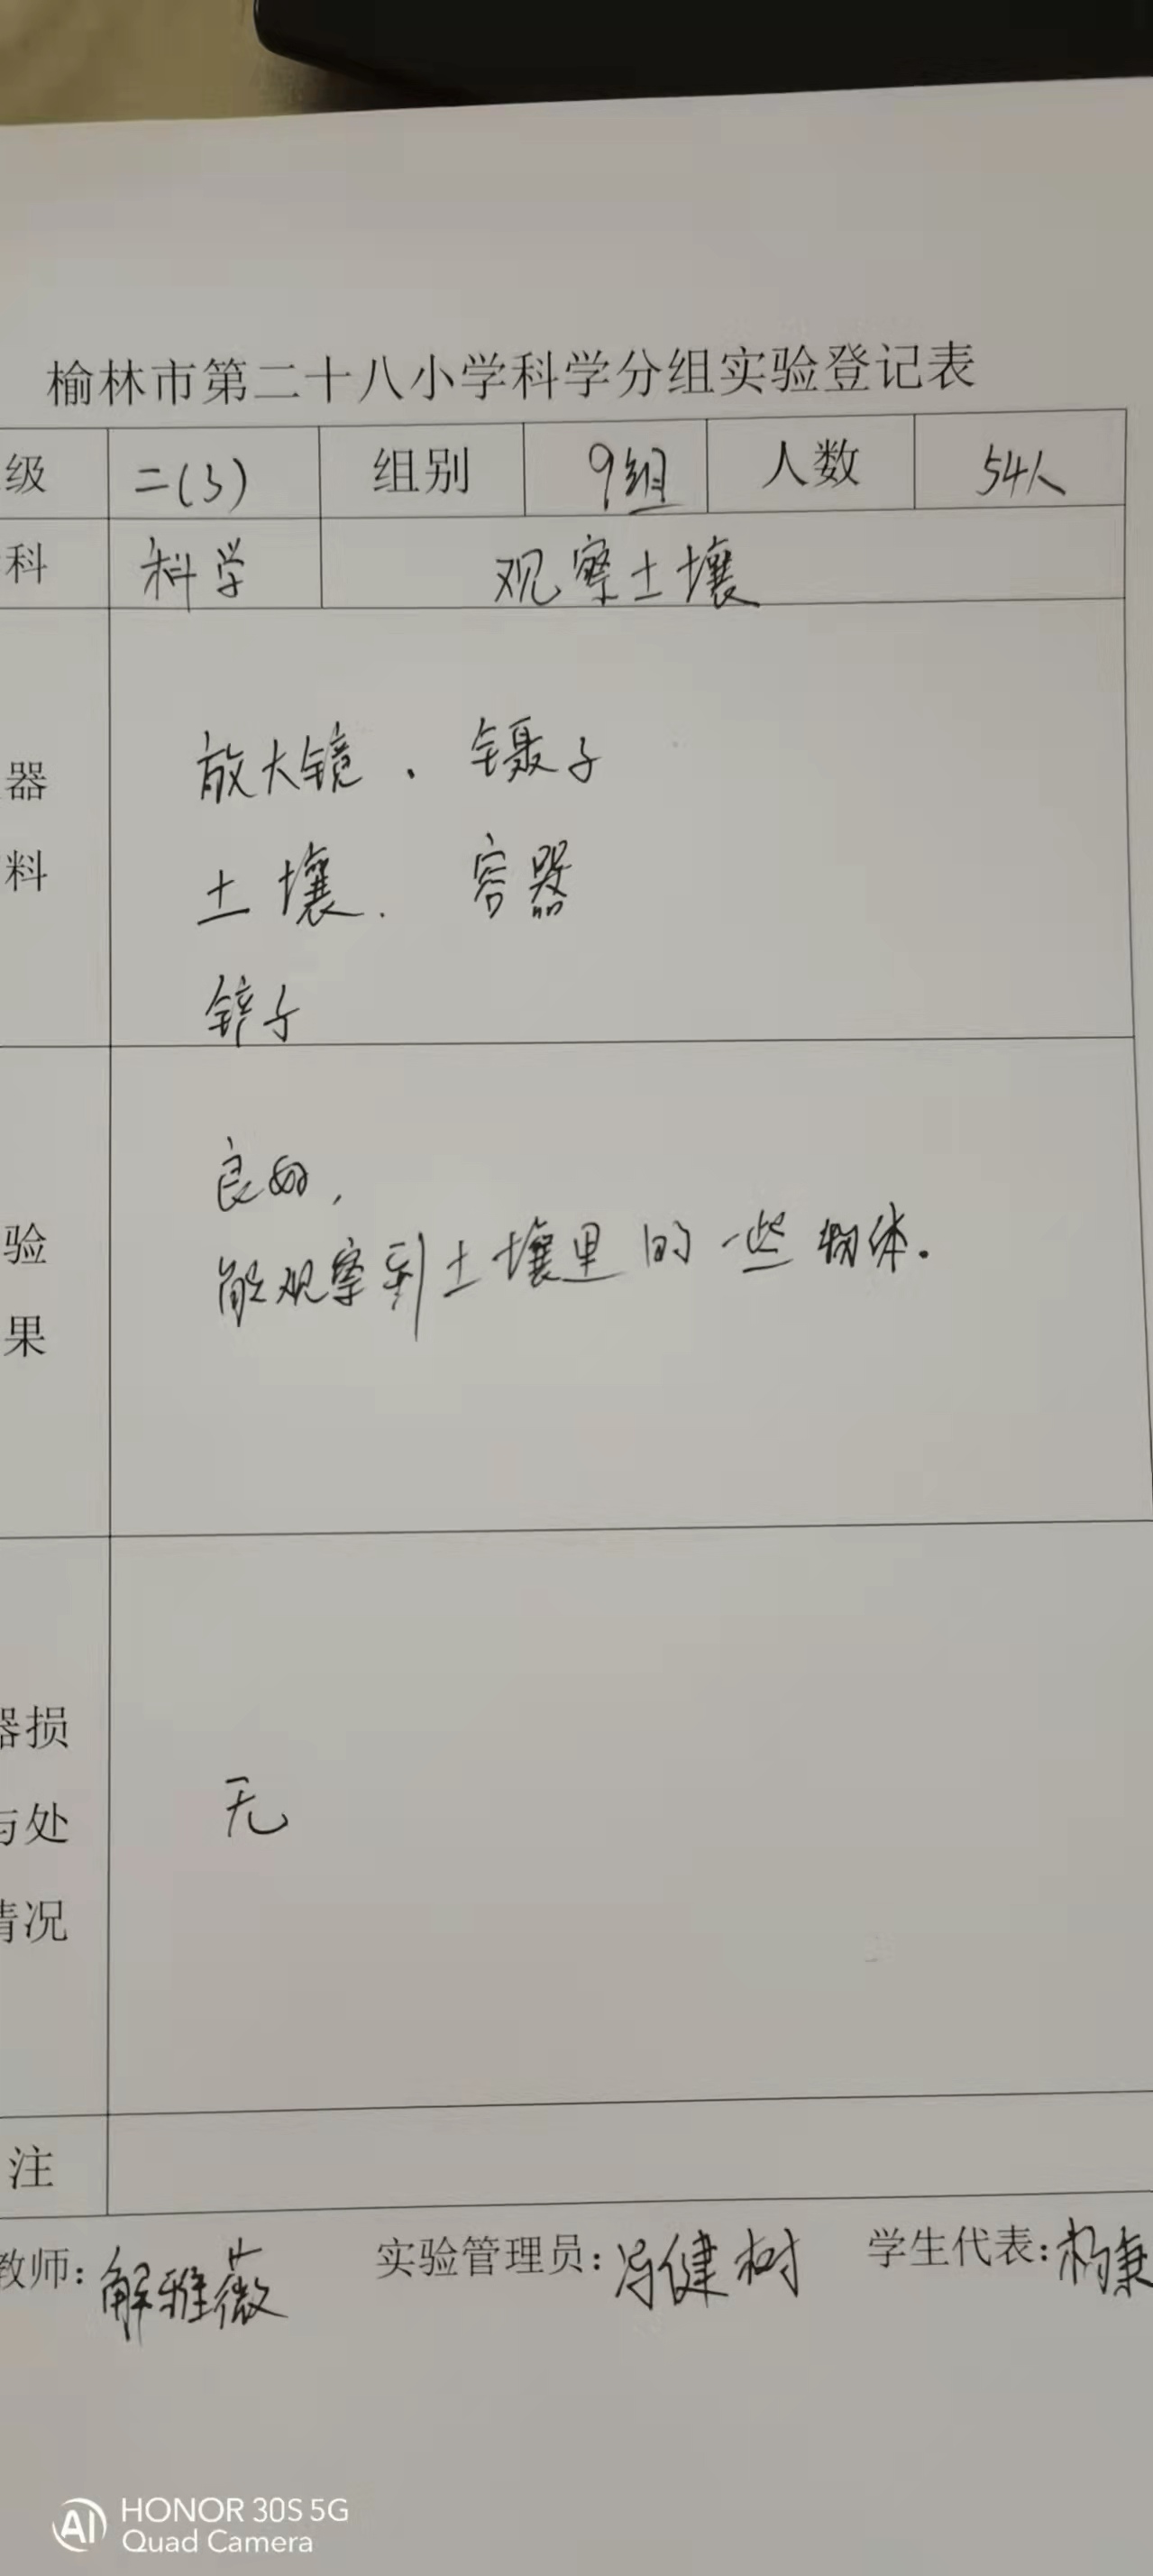 榆林市第二十八小学科学分组实验登记表
级 二(3) 组别 9组 人数 54人
科 科学 观察土壤
器 放大镜、镊子
料 土壤、容器
良好,
验 能观察到土壤里的一些物体.
果
器损
与处 无
情况
注
教师: 解雅薇 实验管理员: 冯健树 学生代表: 杨
HONOR 30S 5G
Quad Camera